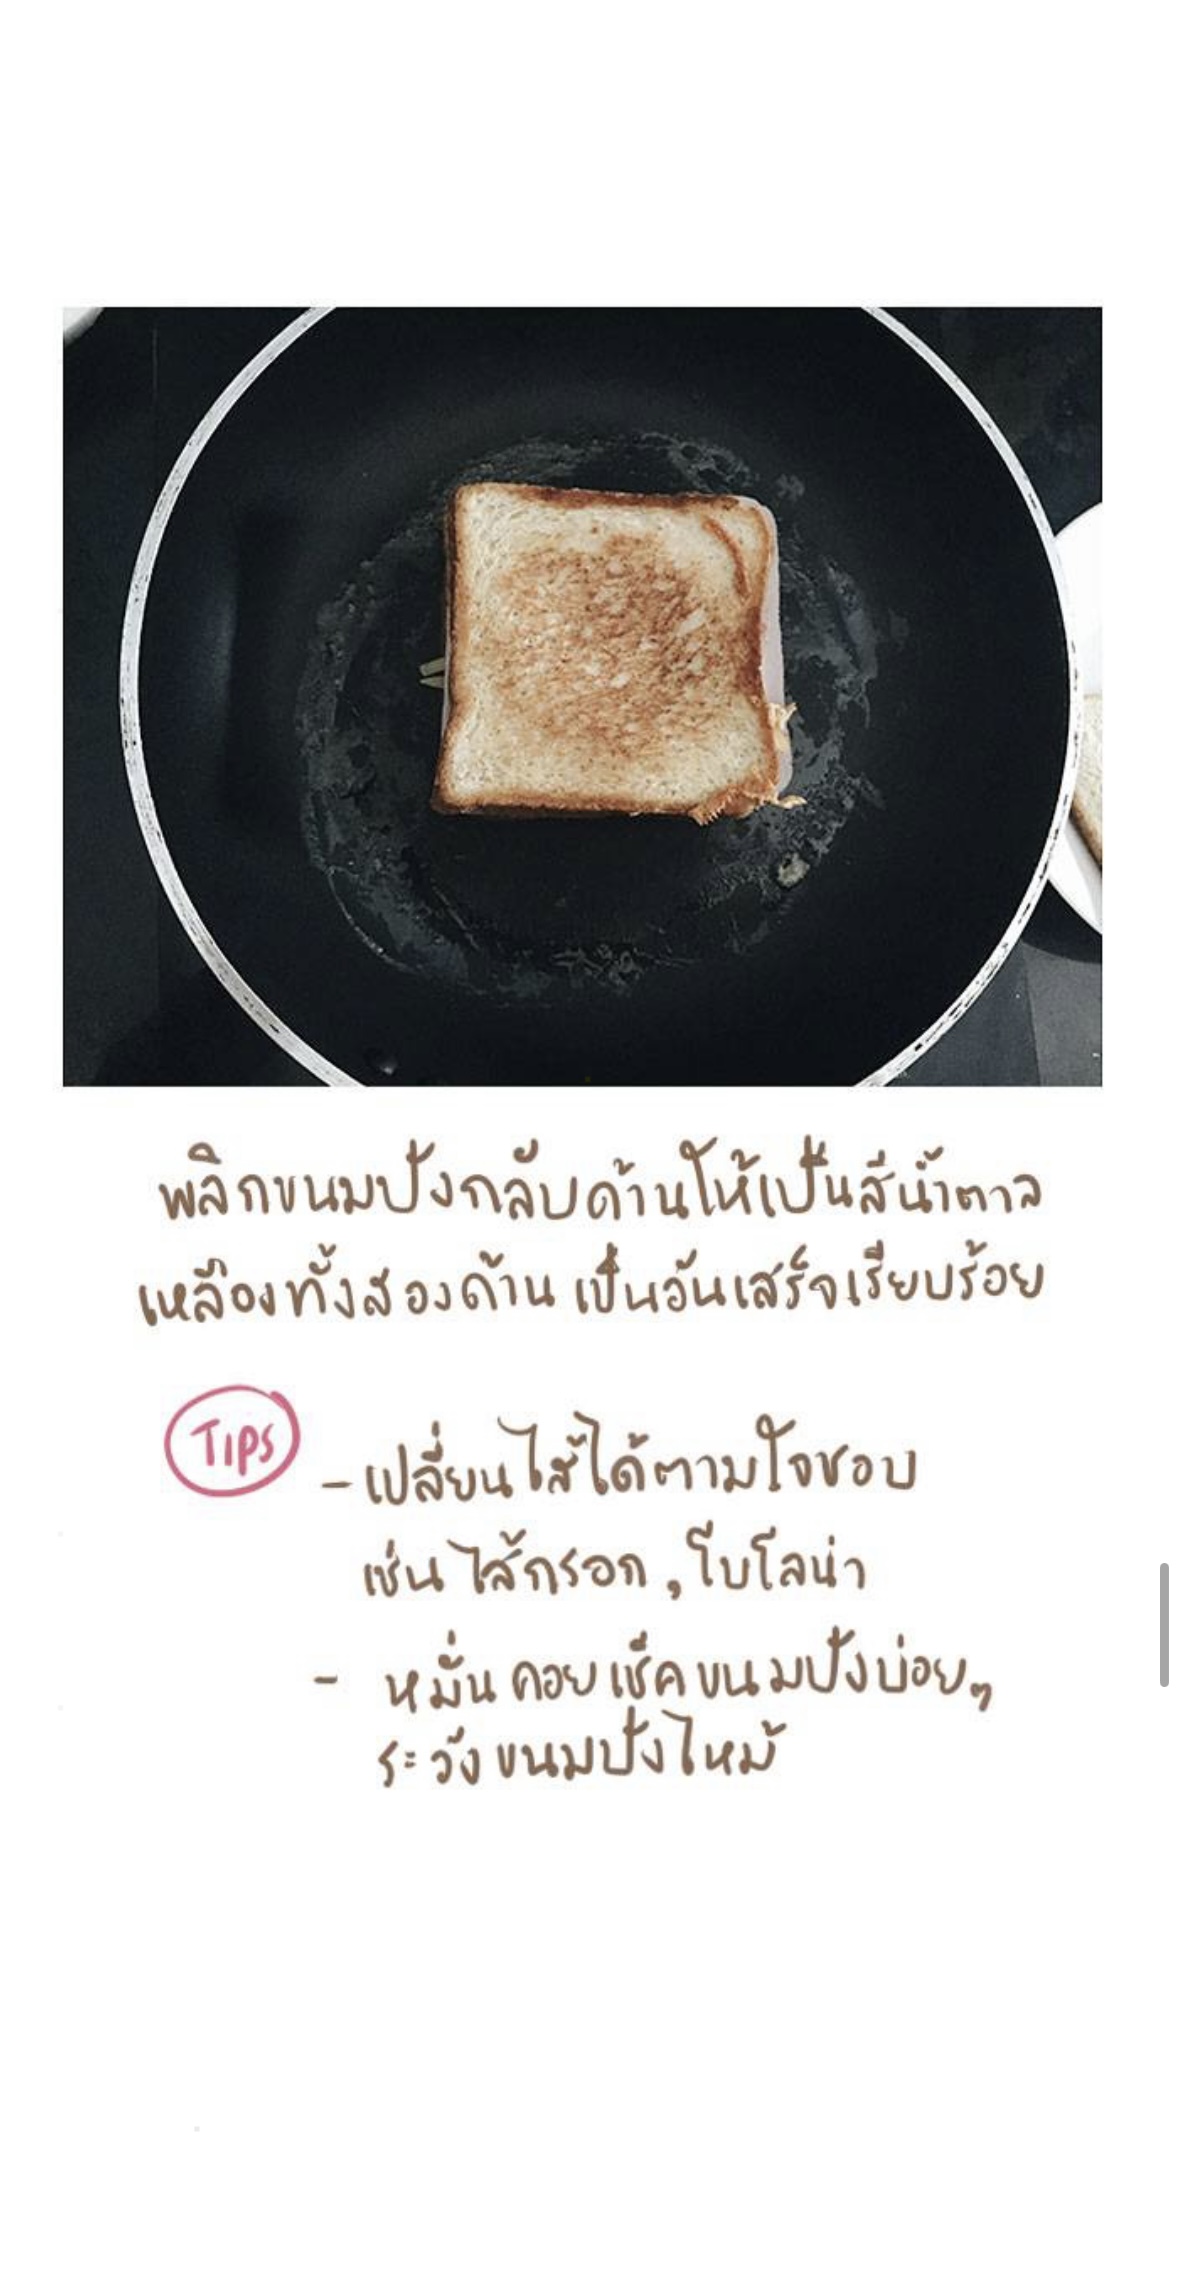 พลิกขนมปังกลับด้านให้เป็นสีน้ำตาล
เหลืองทั้งสองด้าน เป็นอันเสร็จเรียบร้อย
TIPS
- เปลี่ยนไส้ได้ตามใจชอบ
เช่น ไส้กรอก , โบโลน่า
- หมั่นคอยเช็คขนมปังบ่อยๆ
ระวังขนมปังไหม้